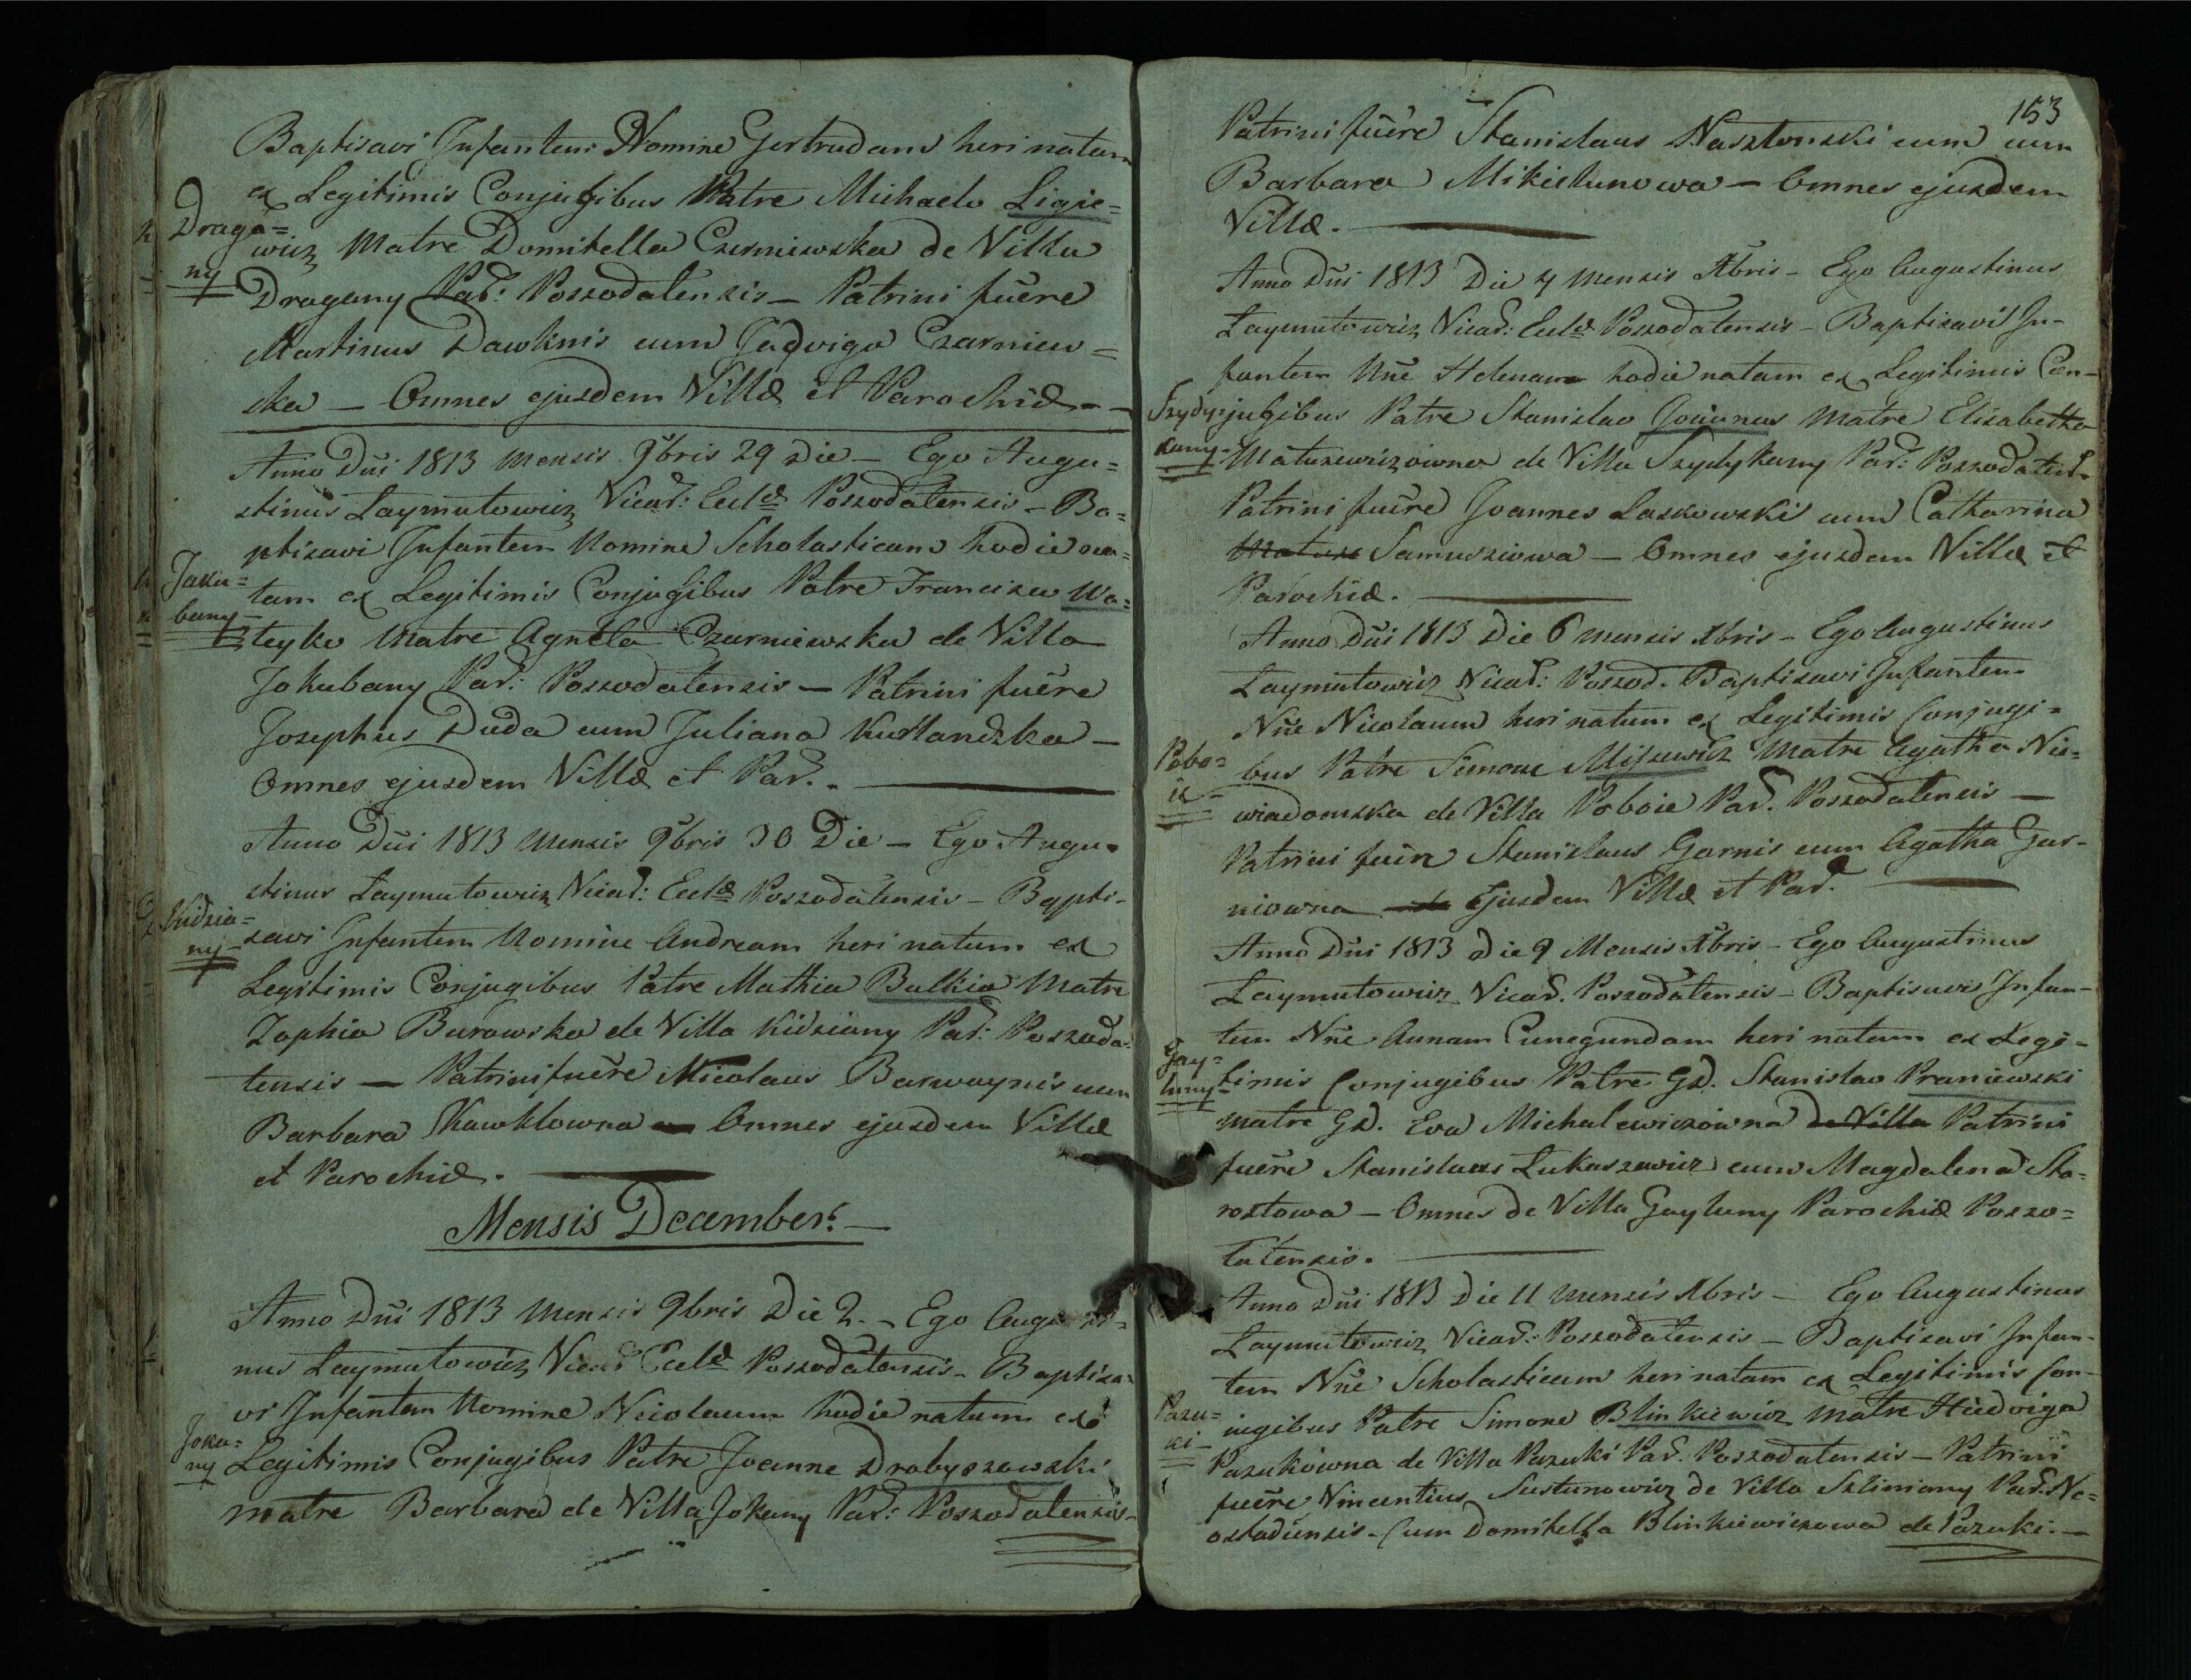 Baptisavi Infantem Nomine Gertrudam heri natam
ex Legitimis Conjugibus Patre Michaele Ligie=
Draga=
ny
wicz Matre Domitella Czerniewska de Villa
Dragany Par: Poszodatensis – Patrini fuere
Martinus Dawknis cum Jadviga Czarniew=
ska – Omnes ejusdem Villæ et Parochiæ –
Anno Dni 1813 Mensis 9bris 29 Die – Ego Augu=
stinus Laymutowicz Vicar: Eccl. Poszodatensis – Ba=
ptisavi Infantem Nomine Scholasticam hodie na=
Jaku=
bany
tam ex Legitimis Conjugibus Patre Francisco Wa=
leyko Matre Agnela Czarniewska de Villa
Jokubany Par: Poszodatensis – Patrini fuere
Josephus Duda cum Juliana Kurlandzka –
Omnes ejusdem Villæ et Par.
Anno Dni 1813 Mensis 9bris 30 Die – Ego Augu=
stinus Laymutowicz Vicar: Eccl. Poszodatensis – Bapti-
Kidzia=
ny
savi Infantem Nomine Andream heri natum ex
Legitimis Conjugibus Patre Mathia Bulkia Matre
Zophia Burowska de Villa Kidziany Par: Poszoda-
tensis – Patrini fuere Nicolaus Barwaynis cum
Barbara Kawklowna Omnes ejusdem Villæ
et Parochiæ.
Mensis December. –
Anno Dni 1813 Mensis 9bris Die 2. – Ego Augusti=
nus Laymutowicz Vicar Eccl. Poszodatensis – Baptisa=
vi Infantem Nomine Nicolaum hodie natum ex
Joka=
ny
Legitimis Conjugibus Patre Joanne Drobyszewski
Matre Barbara de Villa Jokany Par: Poszodatensis –
153
Patrini fuere Stanislaus Nasztonski cum cum
Barbara Mikielunowa – Omnes ejusdem
Villæ.
Anno Dni 1813 Die 4 Mensis Xbris – Ego Augustinus
Laymutowicz Vicar: Eccl. Poszodatensis – Baptisavi In-
fantem Nne Helenam hodie natam ex Legitimis Con-
Szydy=
kany
jugibus Patre Stanislao Gociunas Matre Elisabetha
Matusewiczowna de Villa Szydykany Par: Poszodatens.
Patrini fuere Joannes Laskowski cum Catharina
Samusziowa – Omnes ejusdem Villæ et
Parochiæ.
Anno Dni 1813 Die 6 Mensis Xbris – Ego Augustinus
Laymutowicz Vicar: Poszod. Baptisavi Infantem
Nne Nicolaum heri natum ex Legitimis Conjugi=
Pobo=
ie
bus Patre Simone Misiewicz Matre Agatha Nie=
wiadomska de Villa Poboie Par. Poszodatensis –
Patrini fuere Stanislaus Garnis cum Agatha Gar-
niowna Ejusdem Villæ et Par.
Anno Dni 1813 Die 9 Mensis Xbris – Ego Augustinus
Laymutowicz Vicar. Poszodatensis – Baptisavi Infan-
tem Nne Annam Cunegundam heri natam ex Legi-
Gay=
luny
timis Conjugibus Patre GD. Stanislao Praniewski
Matre GD. Eva Michalewiczowna de Villa Patrini
fuere Stanislaus Lukaszewicz cum Magdalena Sta=
rostowa – Omnes de Villa Gayluny Parochiæ Poszo=
tatensis.
Anno Dni 1813 Die 11 Mensis Xbris – Ego Augustinus
Laymutowicz Vicar: Poszodatensis – Baptisavi Infan-
tem Nne Scholasticam heri natam ex Legitimis Con-
Pazu=
ki
iugibus Patre Simone Blinkiewicz Matre Hedviga
Pazukowna de Villa Pazuki Par. Poszodatensis – Patrini
fuere Vincentius Sustunowicz de Villa Szliniany Par. No=
ostadiensis – Cum Domitella Blinkiewiczowa de Pazuki. –